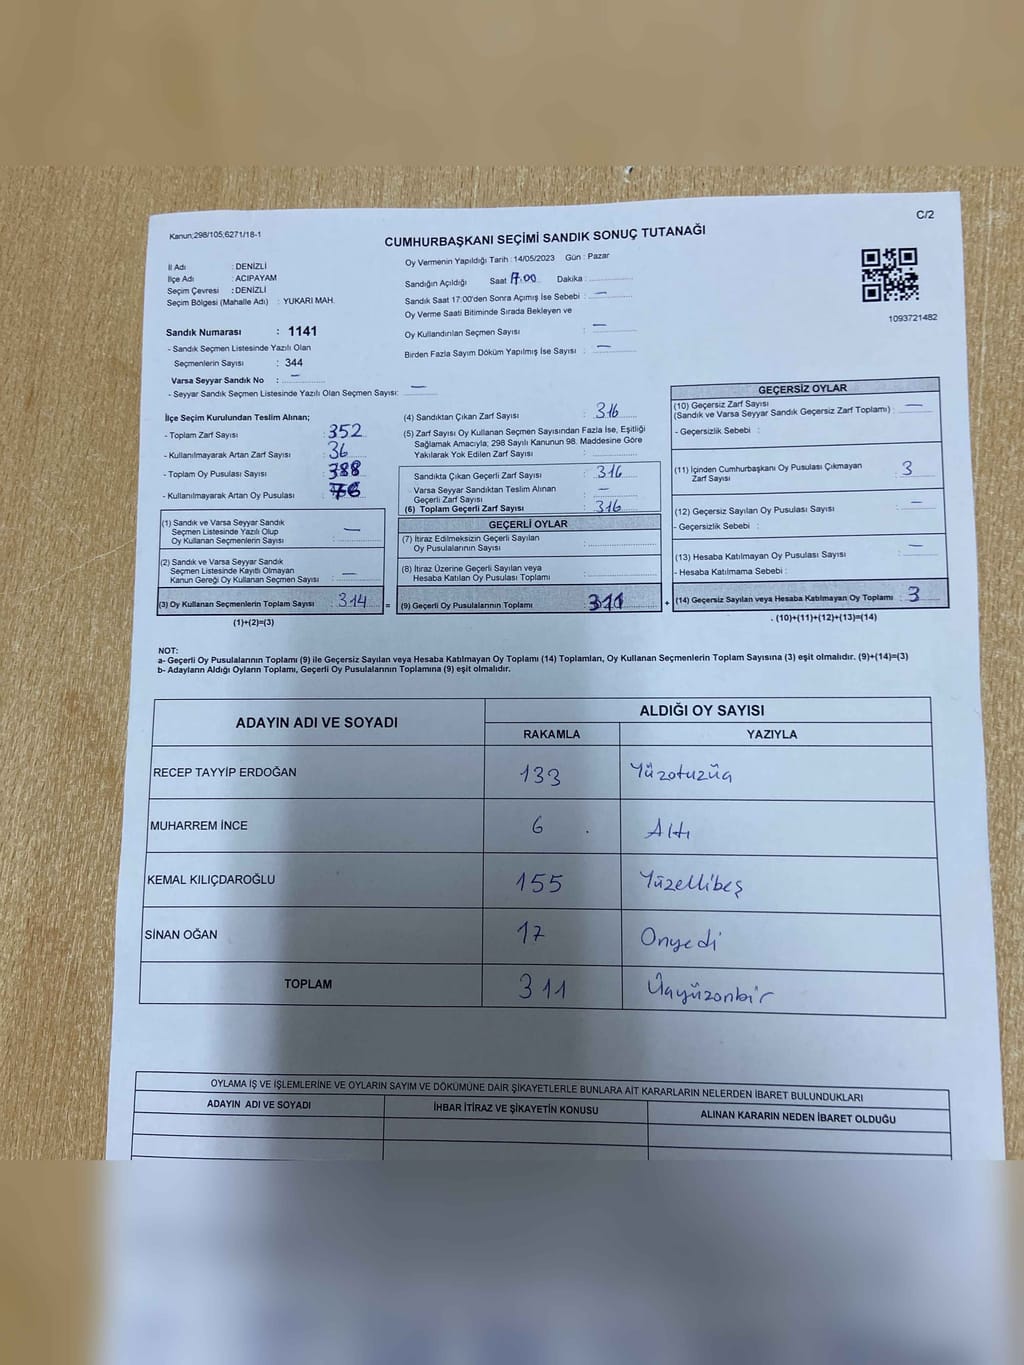 C/2
Kanun;298/105;6271/18-1
CUMHURBAŞKANI SEÇİMİ SANDIK SONUÇ TUTANAĞI
İl Adı : DENİZLİ
İlçe Adı : ACIPAYAM
Seçim Çevresi : DENİZLİ
Seçim Bölgesi (Mahalle Adı) : YUKARI MAH.
Sandık Numarası : 1141
- Sandık Seçmen Listesinde Yazılı Olan
Seçmenlerin Sayısı : 344
Varsa Seyyar Sandık No : –
- Seyyar Sandık Seçmen Listesinde Yazılı Olan Seçmen Sayısı: –
Oy Vermenin Yapıldığı Tarih : 14/05/2023 Gün : Pazar
Sandığın Açıldığı Saat 17.00 Dakika :
Sandık Saat 17:00'den Sonra Açımış İse Sebebi : –
Oy Verme Saati Bitiminde Sırada Bekleyen ve
Oy Kullandırılan Seçmen Sayısı : –
Birden Fazla Sayım Döküm Yapılmış İse Sayısı : –
1093721482
İlçe Seçim Kurulundan Teslim Alınan;
- Toplam Zarf Sayısı : 352
- Kullanılmayarak Artan Zarf Sayısı : 36
- Toplam Oy Pusulası Sayısı : 388
- Kullanılmayarak Artan Oy Pusulası : 76
(1) Sandık ve Varsa Seyyar Sandık
Seçmen Listesinde Yazılı Olup
Oy Kullanan Seçmenlerin Sayısı : –
(2) Sandık ve Varsa Seyyar Sandık
Seçmen Listesinde Kayıtlı Olmayan
Kanun Gereği Oy Kullanan Seçmen Sayısı : –
(3) Oy Kullanan Seçmenlerin Toplam Sayısı : 314
(1)+(2)=(3)
(4) Sandıktan Çıkan Zarf Sayısı : 316
(5) Zarf Sayısı Oy Kullanan Seçmen Sayısından Fazla İse, Eşitliği
Sağlamak Amacıyla; 298 Sayılı Kanunun 98. Maddesine Göre
Yakılarak Yok Edilen Zarf Sayısı :
Sandıkta Çıkan Geçerli Zarf Sayısı : 316
- Varsa Seyyar Sandıktan Teslim Alınan
Geçerli Zarf Sayısı : –
(6) Toplam Geçerli Zarf Sayısı : 316
GEÇERLİ OYLAR
(7) İtiraz Edilmeksizin Geçerli Sayılan
Oy Pusulalarının Sayısı :
(8) İtiraz Üzerine Geçerli Sayılan veya
Hesaba Katılan Oy Pusulası Toplamı :
= (9) Geçerli Oy Pusulalarının Toplamı 311
GEÇERSİZ OYLAR
(10) Geçersiz Zarf Sayısı
(Sandık ve Varsa Seyyar Sandık Geçersiz Zarf Toplamı) : –
- Geçersizlik Sebebi :
(11) İçinden Cumhurbaşkanı Oy Pusulası Çıkmayan
Zarf Sayısı : 3
(12) Geçersiz Sayılan Oy Pusulası Sayısı : –
- Geçersizlik Sebebi :
(13) Hesaba Katılmayan Oy Pusulası Sayısı : –
- Hesaba Katılmama Sebebi :
+ (14) Geçersiz Sayılan veya Hesaba Katılmayan Oy Toplamı : 3
. (10)+(11)+(12)+(13)=(14)
NOT:
a- Geçerli Oy Pusulalarının Toplamı (9) ile Geçersiz Sayılan veya Hesaba Katılmayan Oy Toplamı (14) Toplamları, Oy Kullanan Seçmenlerin Toplam Sayısına (3) eşit olmalıdır. (9)+(14)=(3)
b- Adayların Aldığı Oyların Toplamı, Geçerli Oy Pusulalarının Toplamına (9) eşit olmalıdır.
ADAYIN ADI VE SOYADI
ALDIĞI OY SAYISI
RAKAMLA YAZIYLA
RECEP TAYYİP ERDOĞAN 133 Yüzotuzüç
MUHARREM İNCE 6 Altı
KEMAL KILIÇDAROĞLU 155 Yüzellibeş
SİNAN OĞAN 17 Onyedi
TOPLAM 311 Üçyüzonbir
OYLAMA İŞ VE İŞLEMLERİNE VE OYLARIN SAYIM VE DÖKÜMÜNE DAİR ŞİKAYETLERLE BUNLARA AİT KARARLARIN NELERDEN İBARET BULUNDUKLARI
ADAYIN ADI VE SOYADI İHBAR İTİRAZ VE ŞİKAYETİN KONUSU ALINAN KARARIN NEDEN İBARET OLDUĞU